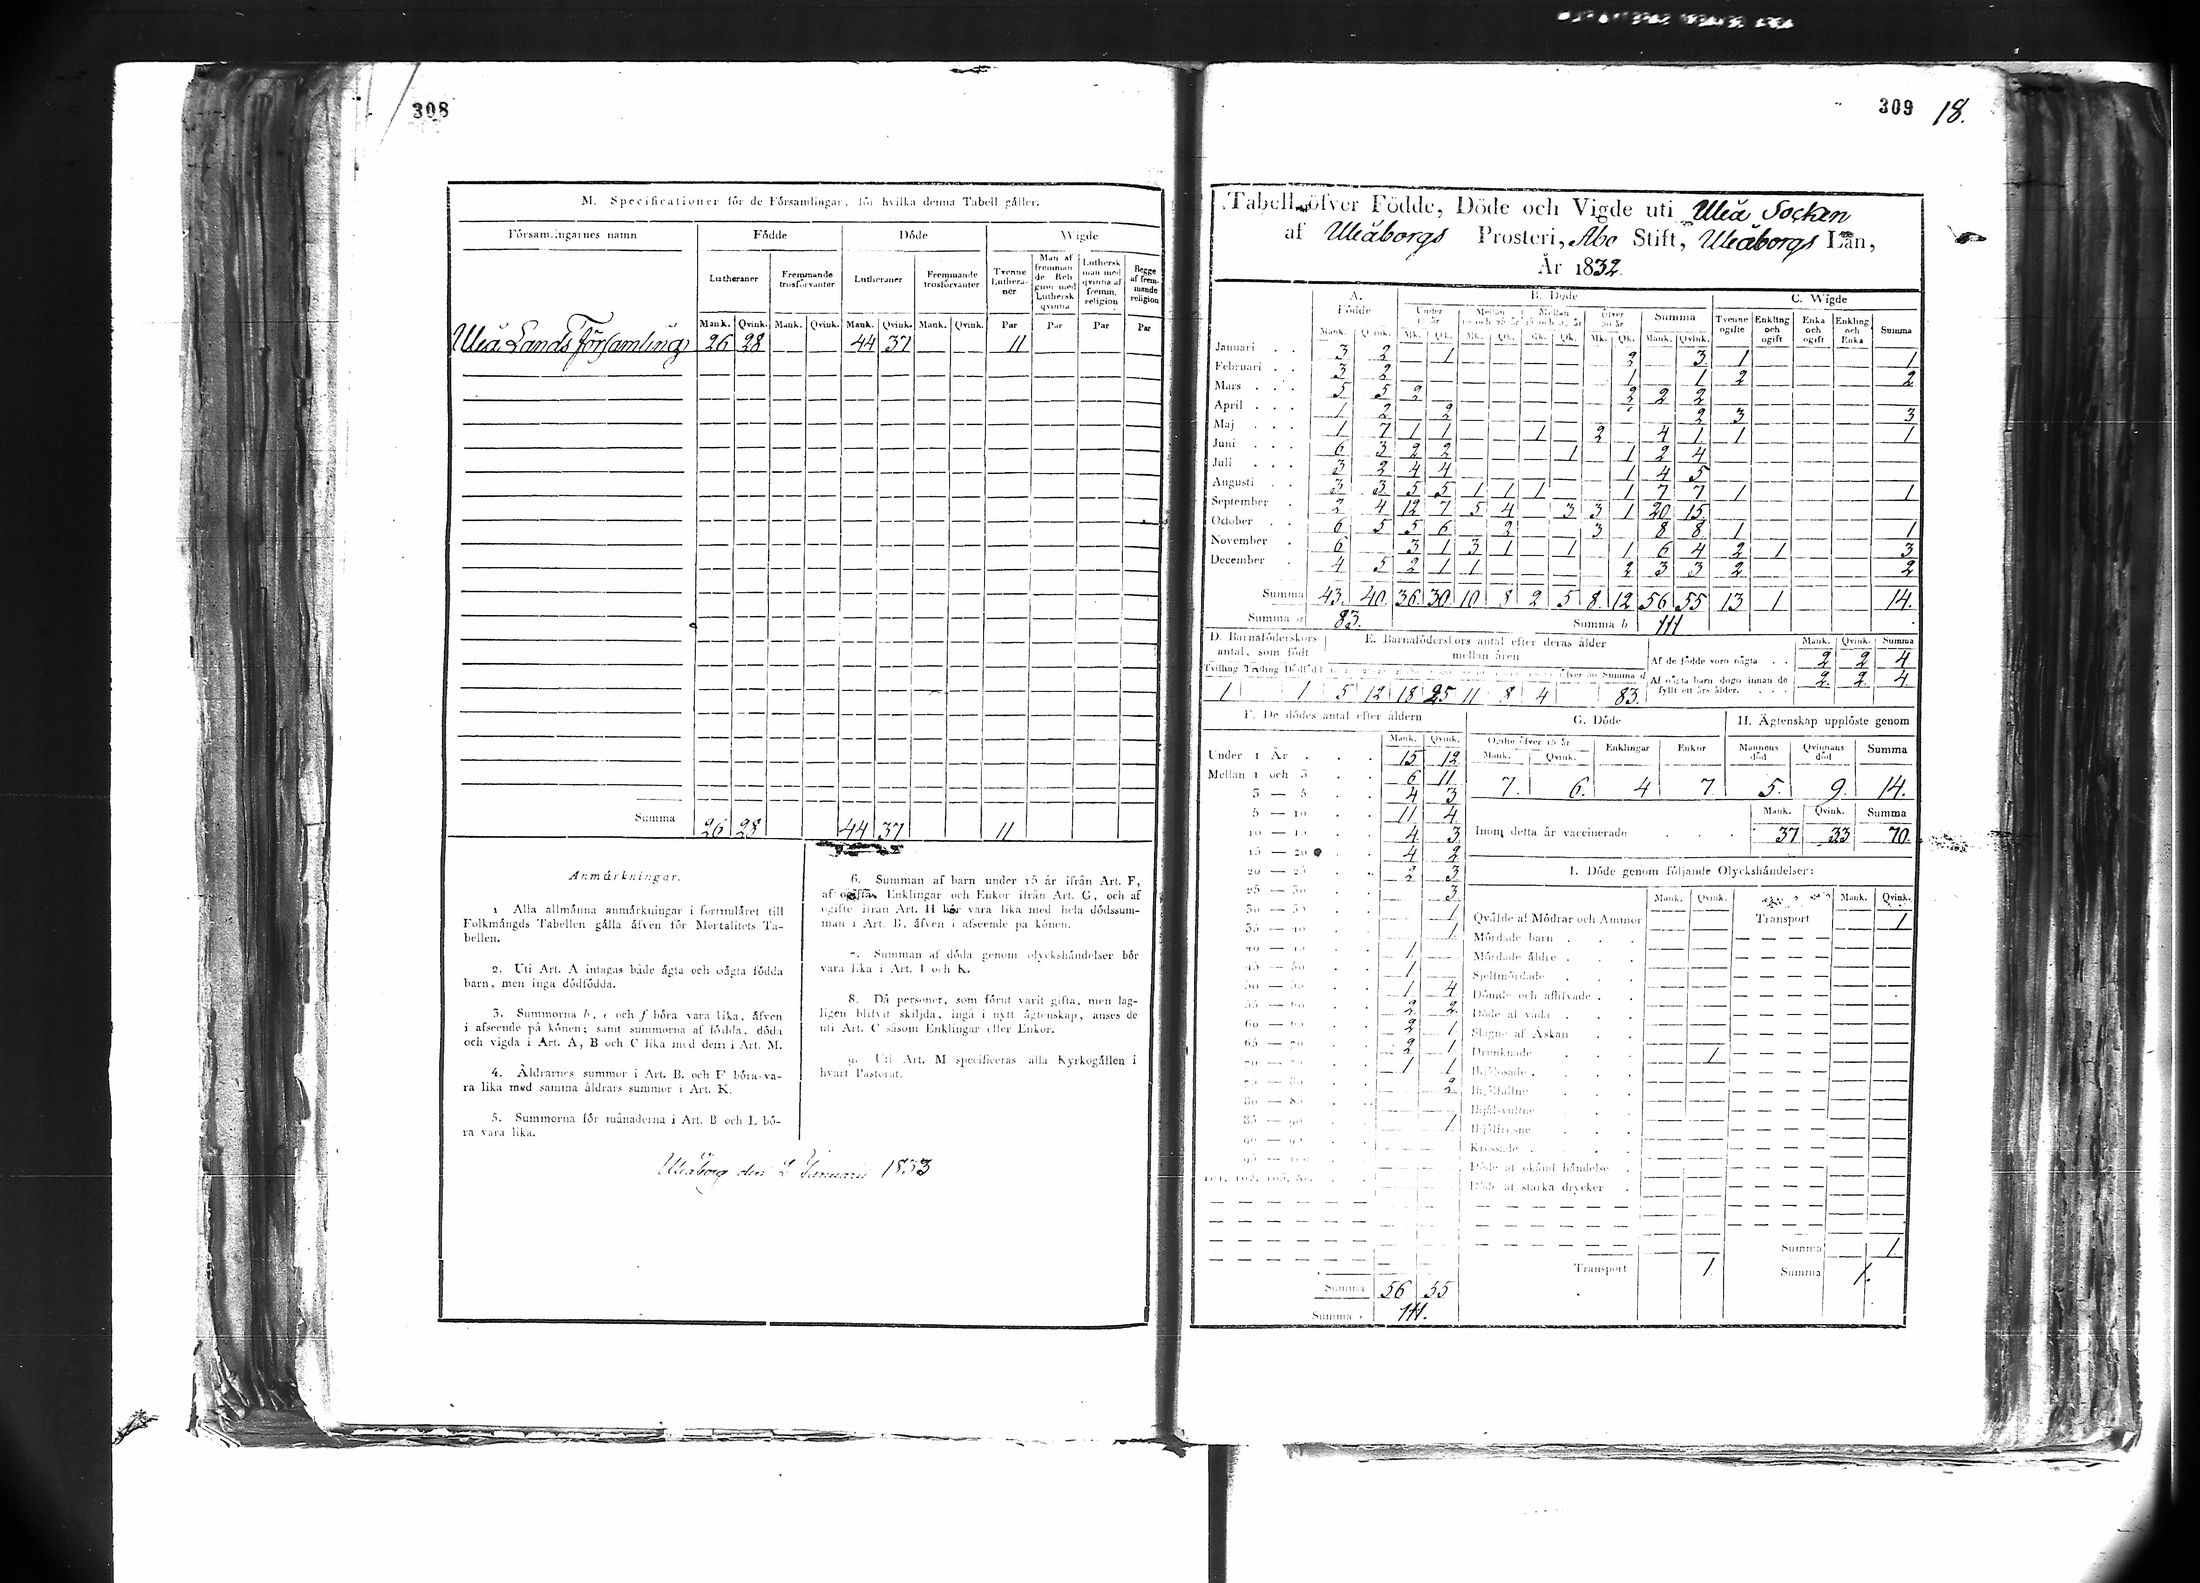 308
M. Specificationer för de Församlingar, för hvilka denna Tabell gäller.
Församlingarnes namn Födde Döde Wigde
Lutheraner Fremmande trosförvanter Lutheraner Fremmande trosförvanter Tvenne Lutheraner Man af fremmande Religion med Luthersk qvinna Luthersk man med qvinna af fremm. religion Begge af fremmande religion
Mank. Qvink. Mank. Qvink. Mank. Qvink. Mank. Qvink. Par Par Par Par
Uleå Lands Församling 26 28 44 37 11
Summa 26 28 44 37 11
Anmärkningar.
1 Alla allmänna anmärkningar i formuläret till
Folkmängds Tabellen gälla äfven för Mortalitets Ta-
bellen.
2. Uti Art. A intagas både ägta och oägta födda
barn, men inga dödfödda.
3. Summorna b, e och f böra vara lika, äfven
i afseende på könen; samt summorna af födda, döda
och vigda i Art. A, B och C lika med dem i Art. M.
4. Åldrarnes summor i Art. B. och F böra va-
ra lika med samma åldrars summor i Art. K.
5. Summorna för månaderna i Art. B och L bö-
ra vara lika.
6. Summan af barn under 15 år ifrån Art. F,
af ogifta, Enklingar och Enkor ifrån Art. G, och af
ogifte ifrån Art. H bör vara lika med hela dödssum-
man i Art. B, äfven i afseende på könen.
7. Summan af döda genom olyckshändelser bör
vara lika i Art. I och K.
8. Då personer, som förut varit gifta, men lag-
ligen blifvit skiljda, ingå i nytt ägtenskap, anses de
uti Art. C såsom Enklingar eller Enkor.
9. Uti Art. M specificeras alla Kyrkogällen i
hvart Pastorat.
Uleåborg den 2 Januarii 1833
309 18.
Tabell öfver Födde, Döde och Vigde uti Uleå Socken
af Uleåborgs Prosteri, Åbo Stift, Uleåborgs Län,
År 1832.
A. Födde B. Döde C. Wigde
Under 10 år Mellan 10 och 25 år Mellan Öfver 50 år Summa Tvenne ogifte Enkling och ogift Enka och ogift Enkling och Enka Summa
Mank. Qvink. Mk. Qk. Mk. Qk. Mk. Qk. Mk. Qk. Mank. Qvink.
Januari 3 2 1 2 3 1 1
Februari 3 2 1 1 2 2
Mars 5 5 2 2 2 2
April 1 2 2 2 3 3
Maj 1 7 1 1 1 2 4 1 1 1
Juni 6 3 2 2 1 1 2 4
Juli 3 2 4 4 1 4 5
Augusti 3 3 5 5 1 1 1 1 7 7 1 1
September 2 4 12 7 5 4 3 3 1 20 15
October 6 5 5 6 2 3 8 8 1 1
November 6 3 1 3 1 1 1 6 4 2 1 3
December 4 5 2 1 1 2 3 3 2 2
Summa 43. 40. 36 30 10 8 2 5 8 12 56 55 13 1 14.
Summa a 83. Summa b 111
D. Barnaföderskors antal, som födt E. Barnaföderskors antal efter deras ålder mellan åren Mank. Qvink. Summa
Af de födde voro oägta 2 2 4
Tvilling Trilling Dödfödd öfver 50 Summa d
Af oägta barn dogo innan de fyllt ett års ålder. 2. 2. 4.
1 1 5 12 18 25 11 8 4 83.
F. De dödes antal efter åldern G. Döde H. Ägtenskap upplöste genom
Mank. Qvink. Ogifte öfver 15 år Enklingar Enkor Mannens död Qvinnans död Summa
Mank. Qvink.
7. 6. 4 7 5. 9. 14.
Under 1 År 15 12
Mellan 1 och 3 6 11
3 — 5 4 3
5 — 10 11 4
10 — 15 4 3
15 — 20 4 2
20 — 25 2 3
25 — 30 3
30 — 35 1
35 — 40 1
40 — 45 1
45 — 50 1
50 — 55 1 4
55 — 60 2 2
60 — 65 2 1
65 — 70 2 1
70 — 75 1 1
75 — 80 2
80 — 85
85 — 90 1
Summa 56 55
Summa 111.
Mank. Qvink. Summa
Inom detta år vaccinerade 37 33 70.
I. Döde genom följande Olyckshändelser:
Mank. Qvink. Mank. Qvink.
Qväfde af Mödrar och Ammor Transport 1
Mördade barn
Mördade äldre
Sjelfmördade
Dömde och aflifvade
Döde af våda
Slagne af Åskan
Drunknade 1
Ihjälfrusne
Krossade
Döde af okänd händelse
Döde af starka drycker
Summa 1
Transport 1 Summa 1.